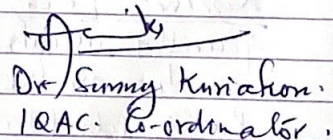 Dr Sunny Kuriakon.
IQAC. Co-ordinator.